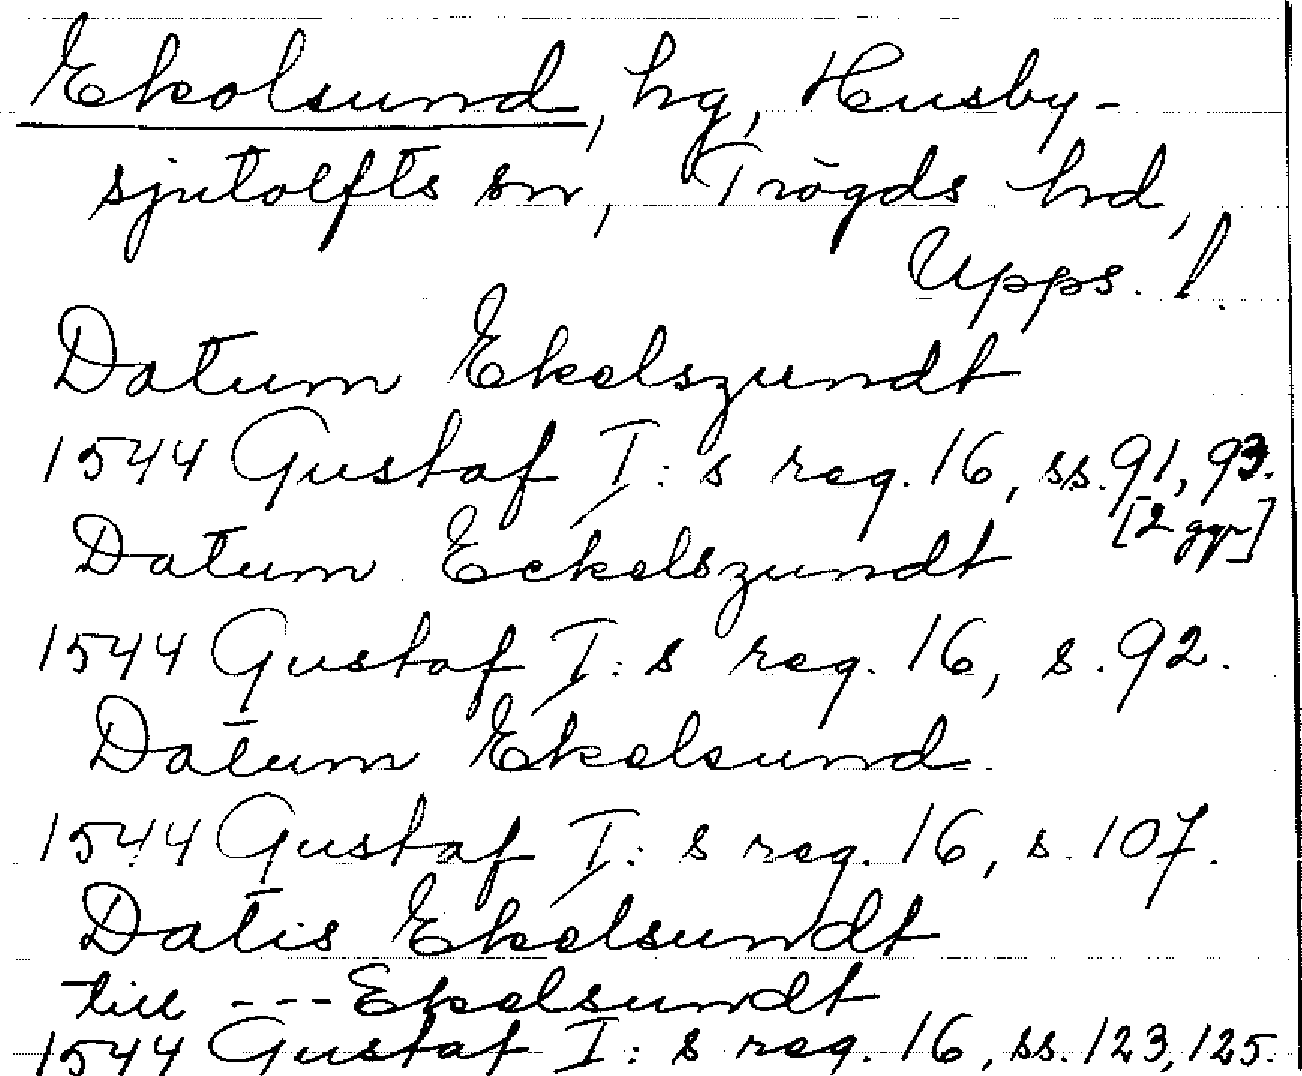 Ekolsund, hg, Husby-
sjutolfts sn, Trögds hd,
Upps. l.
Datum Ekelszundt
1544 Gustaf I:s reg. 16, ss. 91, 93.
[2 ggr]
Datum Eckelszundt
1544 Gustaf I:s reg. 16, s. 92.
Datum Ekelsund
1544 Gustaf I:s reg. 16, s. 107.
Datis Ekelsundt
till --- Ekelsundt
1544 Gustaf I:s reg. 16, ss. 123, 125.